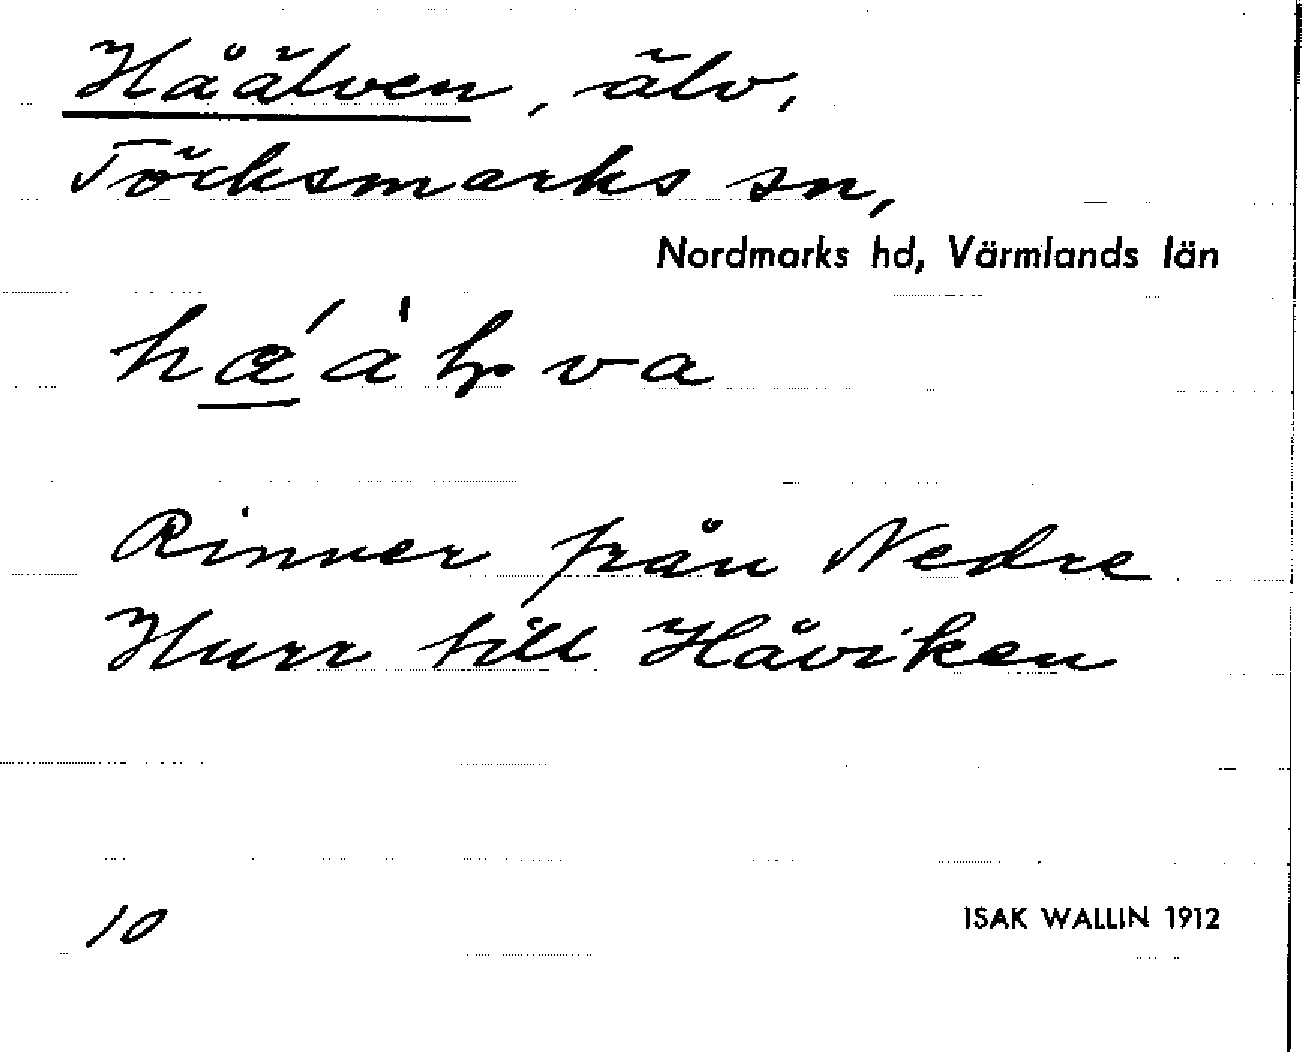 Håälven, älv,
Töcksmarks sn,
Nordmarks hd, Värmlands län
Rinner från Nedre
Hurr till Håviken
10
ISAK WALLIN 1912